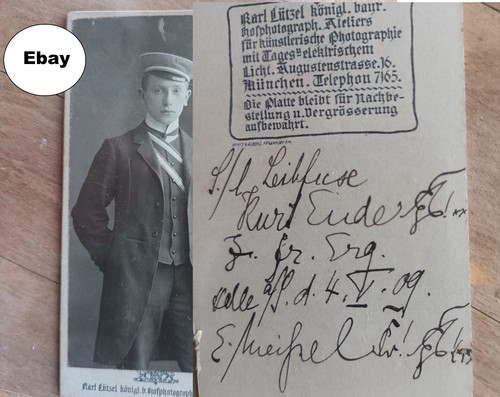 Ebay
Karl Lützel königl. bayr.
Hofphotograph. Ateliers
für künstlerische Photographie
mit Tages= elektrischem
Licht. Augustenstrasse.16.
München. Telephon 7165.
Die Platte bleibt für Nachbe-
stellung u. Vergrösserung
aufbewahrt.
S./l. Leibfuxe
Kurt Ender
z. fr. Erg.
Halle a/S. d. 4. V. 09.
E. Meißel
Karl Lützel königl. b. Hofphotograph